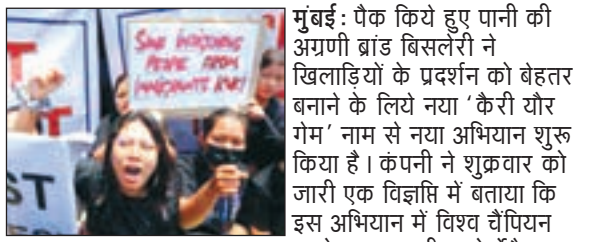 SAVE INDIGENOUS
PEOPLE FROM
IMMIGRANTS
ST
मुंबई : पैक किये हुए पानी की
अग्रणी ब्रांड बिसलेरी ने
खिलाड़ियों के प्रदर्शन को बेहतर
बनाने के लिये नया ‘कैरी यौर
गेम’ नाम से नया अभियान शुरू
किया है। कंपनी ने शुक्रवार को
जारी एक विज्ञप्ति में बताया कि
इस अभियान में विश्व चैंपियन